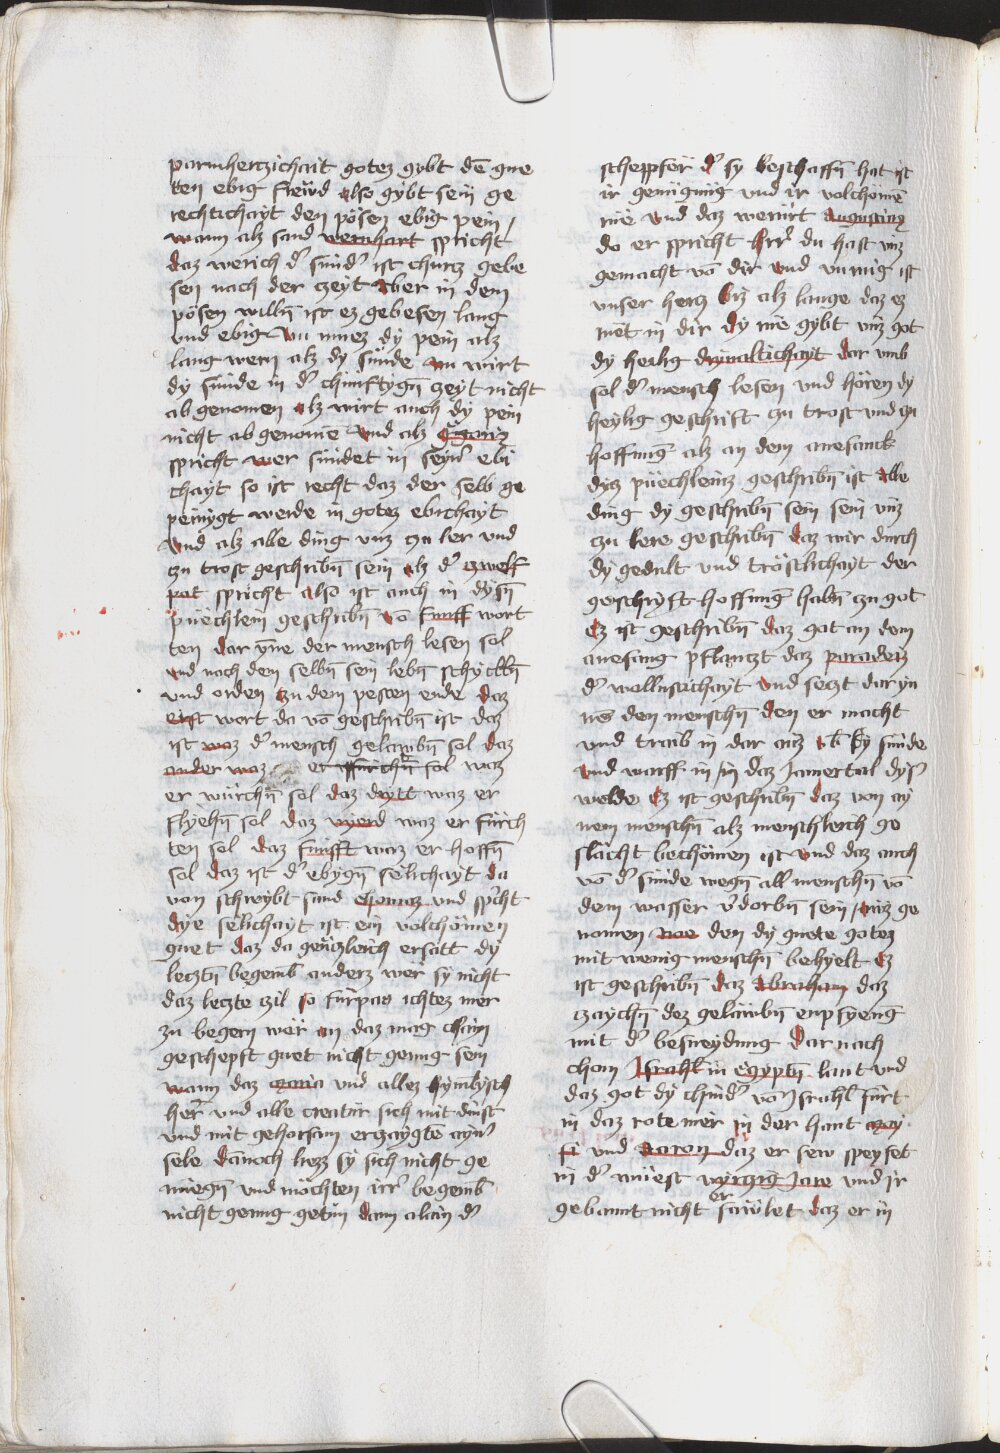 parmherczichait gotez gybt dē gue
ten ebig frewd also gybt sein ge
rechtichayt den pösen ebig pein
wann alz sand wernhart spricht
daz werich d̕ sünd̕ ist churcz gebe
sen nach der czeyt Aber in dem
pösen willn̄ ist ez gebesen lang
vnd ebig Vn muez dy pein alz
lang wern alz dy sünde Vn wirt
dy sünde in d̕ chünftygn̄ czeyt nicht
ab genomen alz wirt auch dy pein
nicht ab genomē Vnd alz
spricht wer sündet in seyn̕ ebi
chayt so ist recht daz der selb ge
peinygt werde in gotez ebichayt
Vnd alz alle ding vnz zu ler vnd
zu trost geschribn̄ sein alz d̕ zwelf
pot spricht also ist auch in dysn̄
püechlein geschribn̄ vō funff wort
ten dar yne der mensch lesen sol
vnd nach dem selbn̄ sein lebn̄ schyckn̄
vnd orden zu dem pesten ende daz
erst wort da vō geschribn̄ ist daz
ist waz d̕ mensch gelawbn̄ sol daz
ander waz er fürchn̄ sol waz
er würchn̄ sol daz drytt waz er
flyehn̄ sol daz vyerd waz er fürch
ten sol daz fünfft waz er hoffn̄
sol daz ist d̕ ebygn̄ sëlichayt da
von schreybt sand Thomaz vnd spr̕cht
dye sëlichayt ist ein volchömen
guet daz da genczleich ersatt dy
lecztn̄ begernb̄ anderz wer sy nicht
daz leczte czil so fürpas ichtez mer
zu begern wër an daz mag chain
geschepft guet nicht genug sein
wann daz maria vnd allez hymlysch
her̕ vnd alle creatür sich mit dinst
vnd mit gehorsam erczaygtē ayn̕
sele dānoch liezz sy sich nicht ge
nüegn̄ vnd möchten irr̕ begernb̄
nicht genug getün dann alain d̕
scheppfër d̕ sy beschaffn̄ hat ist
ir genügnüg vnd ir volchömē
nüe vnd daz wenürt Augustinz
do er spricht Hrr̕ du hast vnz
gemacht vō dir vnd vnruig ist
vnser hercz biz alz lange daz ez
ruët in dir dy rüe gybt vnz got
dy heilig dryualtichayt dar vmb
sol d̕ mensch lesen vnd hören dy
heylig geschrift zu trost vnd zu
hoffnüg alz an dem anesanck
dycz püechleinz geschribn̄ ist Alle
ding dy geschribn̄ sein sein vnz
zu lere geschribn̄ daz wir durch
dy gedult vnd tröstlichayt der
geschryft hoffnūg habn̄ zu got
Ez ist geschribn̄ daz got an dem
anefang pflanczt daz paradeiz
d̕ wollustichayt vnd seczt daryn
nē den menschn̄ den er macht
vnd traib in dar auz vb̄ sy sünde
vnd warff in in daz Jamertal dys̕
welde Ez ist geschribn̄ daz von ay
nem menschn̄ alz menschleich ge
slächt bechömen ist vnd daz auch
vō d̕ sünde wegn̄ all menschn̄ vō
dem wasser v̕dorbn̄ sein auz ge
nomen Noe den dy guete gotez
mit wenig menschn̄ behyelt Ez
ist geschribn̄ daz Abraham daz
czaychn̄ dez gelawbn̄ enpfyeng
mit d̕ besneydung Dar nach
chom Israhl̄ in egyptn̄ lant vnd
daz got dy chind̕ von Israhl̄ fürt
in daz rote mer in der hant moy
si vnd Aaron daz er sew speyset
in d̕ wüest vyrczig Jare vnd ir
gebannt nicht erfawlet daz er in